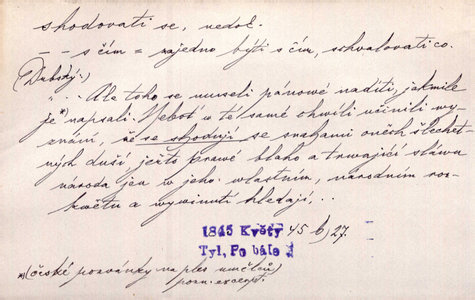 shodovati se, nedok.
- - s čím = zajedno býti s čím, schvalovati co.
(Dubský.)
„.. Ale toho se museli pánové nadíti, jakmile
je*) napsali. Neboť v té samé chvíli učinili vy-
znání, že se shodují se snahami oněch šlechet-
ných duší, ježto pravé blaho a trvající slávu
národa jen w jeho vlastním, národním roz-
květu a vywinutí hledají, ..
1845 Květy 45 b, 27.
Tyl, Po bále 1
*) (české pozvánky na ples umělců)
pozn. excerpt.